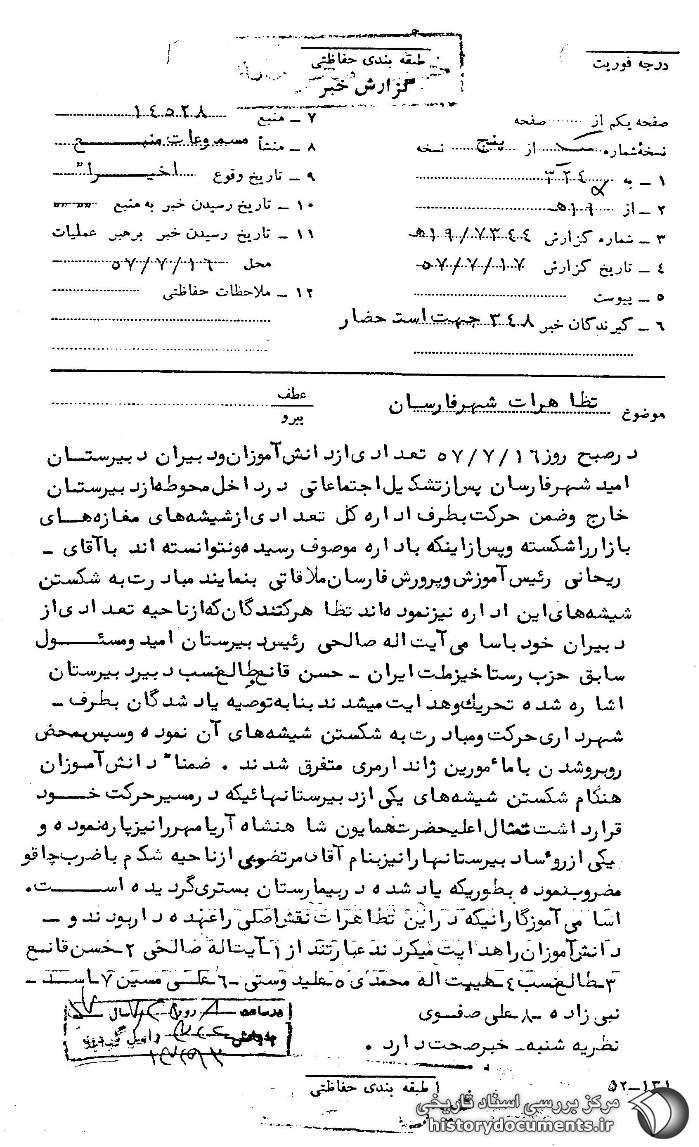 درجه فوریت
طبقه بندی حفاظتی
گزارش خبر
صفحه یکم از صفحه
نسخه شماره از پنج نسخه
۱ ـ به ۳۲۴
۲ ـ از ۱۹ هـ
۳ ـ شماره گزارش ۱۹/۷۳۴۴هـ
۴ ـ تاریخ گزارش ۵۷/۷/۱۷
۵ ـ پیوست
۶ ـ گیرندگان خبر ۳۴۸ جهت استحضار
۷ ـ منبع ۱۴۵۲۸
۸ ـ منشأ مسموعات منبع
۹ ـ تاریخ وقوع اخیراً
۱۰ ـ تاریخ رسیدن خبر به منبع
۱۱ ـ تاریخ رسیدن خبر برهبر عملیات
محل ۵۷/۷/۱۶
۱۲ ـ ملاحظات حفاظتی
موضوع تظاهرات شهرفارسان
عطف
پیرو
درصبح روز ۵۷/۷/۱۶ تعدادی ازدانش آموزان ودبیران دبیرستان
امید شهرفارسان پس ازتشکیل اجتماعاتی درداخل محوطه ازدبیرستان
خارج وضمن حرکت بطرف اداره کل تعدادی ازشیشه های مغازه های
بازارراشکسته وپس ازاینکه باداره موصوف رسیده ونتوانسته اند باآقای ـ
ریحانی رئیس آموزش وپرورش فارسان ملاقاتی بنمایند مبادرت به شکستن
شیشه های این اداره نیزنموده اند تظاهرکنندگان که ازناحیه تعدادی از
دبیران خود باسامی آیت اله صالحی رئیس دبیرستان امید ومسئول
سابق حزب رستاخیزملت ایران ـ حسن قانع طالع نسب دبیردبیرستان
اشاره شده تحریك وهدایت میشدند بنابه توصیه یادشدگان بطرف ـ
شهرداری حرکت ومبادرت به شکستن شیشه های آن نموده وسپس بمحض
روبروشدن بامأمورین ژاندارمری متفرق شدند . ضمناً دانش آموزان
هنگام شکستن شیشه های یکی ازدبیرستانهائیکه درمسیرحرکت خود
قرارداشت تمثال اعلیحضرت همایون شاهنشاه آریامهررانیزپاره نموده و
یکی ازرؤسادبیرستانهارانیزبنام آقای مرتضوی ازناحیه شکم باضرب چاقو
مضروب نموده بطوریکه یادشده دربیمارستان بستری گردیده است.
اسامی آموزگارانیکه دراین تظاهرات نقش اصلی راعهده داربودند و ـ
دانش آموزان راهدایت میکردند عبارتند از ۱ـ آیت اله صالحی ۲ـ حسن قانع
۳ـ طالع نسب ۴ـ هیبت اله محمدی ۵ـ علیدوستی ـ ۶ـ علی مسین ۷ـ اسد ـ
نبی زاده ـ ۸ـ علی صفوی
نظریه شنبه ـ خبرصحت دارد .
طبقه بندی حفاظتی
۵۲-۱۳۱
مرکز بررسی اسناد تاریخی
historydocuments.ir